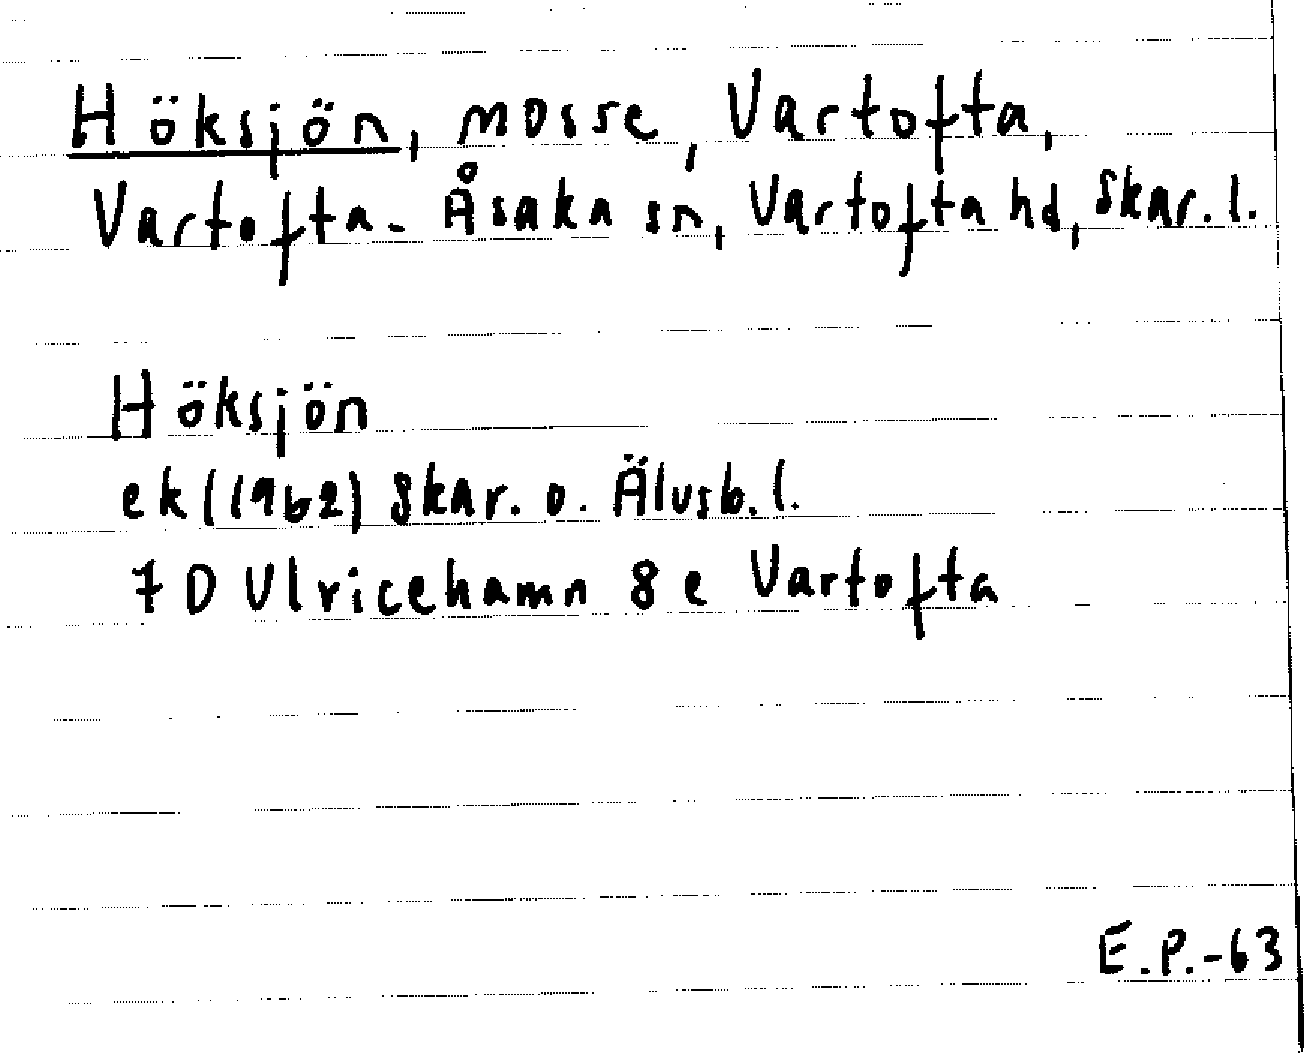 Höksjön, mosse, Vartofta,
Vartofta-Åsaka sn, Vartofta hd, Skar. l.
Höksjön
ek (1962) Skar. o. Älvsb. l.
7 D Ulricehamn 8 e Vartofta
E.P.-63